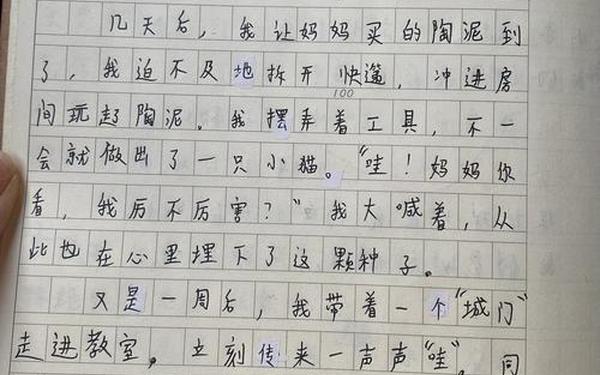 几天后，我让妈妈买的陶泥到
了，我迫不及地拆开快递，冲进房
100
间玩起陶泥。我摆弄着工具，不一
会就做出了一只小猫。“哇！妈妈你
看，我厉不厉害？”我大喊着，从
此也在心里埋下了这颗种子。
又是一周后，我带着一个“城门”
走进教室，立刻传来一声声“哇”。同